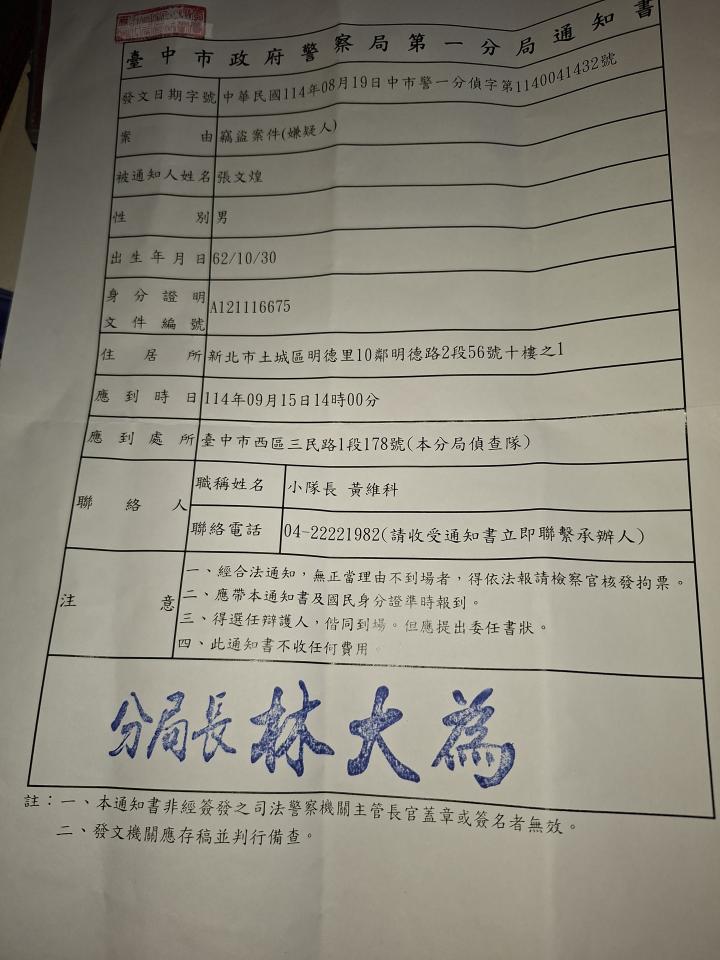 臺中市政府警察局第一分局通知書
發文日期字號 中華民國114年08月19日中市警一分偵字第1140041432號
案由 竊盜案件(嫌疑人)
被通知人姓名 張文煌
性別 男
出生年月日 62/10/30
身分證明文件編號 A121116675
住居所 新北市土城區明德里10鄰明德路2段56號十樓之1
應到時日 114年09月15日14時00分
應到處所 臺中市西區三民路1段178號(本分局偵查隊)
聯絡人 職稱姓名 小隊長 黃維科
聯絡電話 04-22221982(請收受通知書立即聯繫承辦人)
注意 一、經合法通知，無正當理由不到場者，得依法報請檢察官核發拘票。
二、應帶本通知書及國民身分證準時報到。
三、得選任辯護人，偕同到場。但應提出委任書狀。
四、此通知書不收任何費用。
分局長 林大為
註：一、本通知書非經簽發之司法警察機關主管長官蓋章或簽名者無效。
二、發文機關應存稿並判行備查。